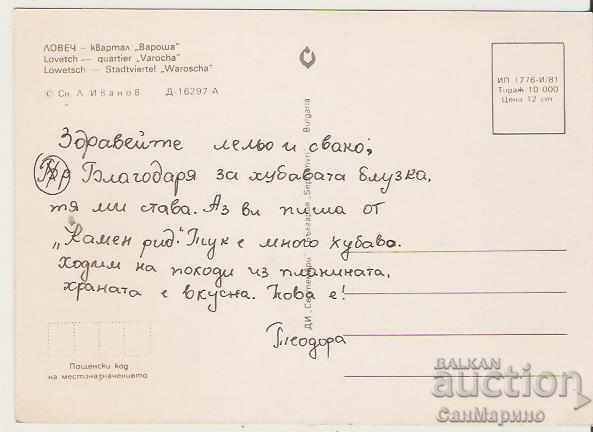 ЛОВЕЧ — квартал „Вароша"
Lovetch — quartier „Varocha"
Lowetsch — Stadtviertel „Waroscha"
© Сн. Л. Иванов Д-16297-А
ИП 1776-И/81
Тираж 10 000
Цена 12 ст
Здравейте лельо и свако;
Благодаря за хубавата блузка,
тя ми става. Аз ви пиша от
„Камен рид". Тук е много хубаво.
Ходим на походи из планината,
храната е вкусна. Това е!
Теодора
Пощенски код
на местоназначението
Bulgaria
BALKAN
auction
СанМарино